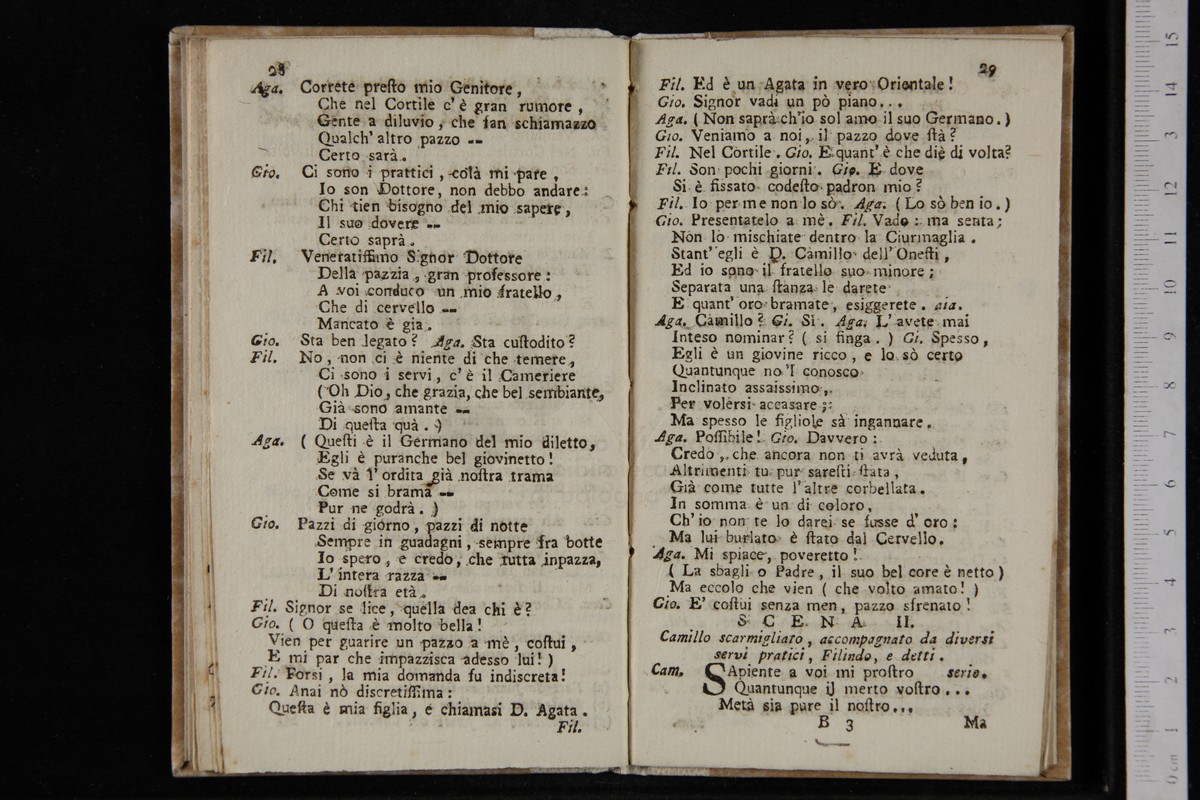 28
Aga. Correte preſto mio Genitore,
Che nel Cortile c' è gran rumore,
Gente a diluvio, che fan schiamazzo
Qualch' altro pazzo --
Certo sarà.
Gio. Ci sono i prattici, colà mi pare,
Io son Dottore, non debbo andare:
Chi tien bisogno del mio sapere,
Il suo dovere --
Certo saprà.
Fil. Veneratiſſimo Signor Dottore
Della pazzia, gran professore:
A voi conduco un mio fratello,
Che di cervello --
Mancato è già.
Gio. Sta ben legato? Aga. Sta cuſtodito?
Fil. No, non ci è niente di che temere,
Ci sono i servi, c' è il Cameriere
(Oh Dio, che grazia, che bel sembiante,
Già sono amante --
Di queſta quà.)
Aga. ( Queſti è il Germano del mio diletto,
Egli è puranche bel giovinetto!
Se và l' ordita già noſtra trama
Come si brama --
Pur ne godrà. )
Gio. Pazzi di giorno, pazzi di notte
Sempre in guadagni, sempre fra botte
Io spero, e credo, che tutta inpazza,
L' intera razza --
Di noſtra età.
Fil. Signor se lice, quella dea chi è?
Gio. ( O queſta è molto bella!
Vien per guarire un pazzo a mè, coſtui,
E mi par che impazzisca adesso lui! )
Fil. Forsi, la mia domanda fu indiscreta!
Gio. Anai nò discretiſſima:
Queſta è mia figlia, e chiamasi D. Agata.
Fil.
29
Fil. Ed è un Agata in vero Orientale!
Gio. Signor vadi un pò piano...
Aga. ( Non saprà ch'io sol amo il suo Germano. )
Gio. Veniamo a noi, il pazzo dove ſtà?
Fil. Nel Cortile. Gio. E quant' è che diè di volta?
Fil. Son pochi giorni. Gio. E dove
Si è fissato codeſto padron mio?
Fil. Io per me non lo sò. Aga. ( Lo sò ben io. )
Gio. Presentatelo a mè. Fil. Vado: ma senta;
Non lo mischiate dentro la Ciurmaglia.
Stant' egli è D. Camillo dell' Oneſti,
Ed io sono il fratello suo minore;
Separata una ſtanza le darete
E quant' oro bramate, esiggerete. via.
Aga. Camillo? Gi. Si. Aga. L' avete mai
Inteso nominar? ( si finga. ) Gi. Spesso,
Egli è un giovine ricco, e lo sò certo
Quantunque no 'l conosco
Inclinato assaissimo,
Per volersi accasare;
Ma spesso le figliole sà ingannare.
Aga. Poſſibile! Gio. Davvero:
Credo, che ancora non ti avrà veduta,
Altrimenti tu pur sareſti ſtata,
Già come tutte l' altre corbellata.
In somma è un di coloro,
Ch' io non te lo darei se fusse d' oro:
Ma lui burlato è ſtato dal Cervello.
Aga. Mi spiace, poveretto!
( La sbagli o Padre, il suo bel core è netto)
Ma eccolo che vien ( che volto amato! )
Gio. E' coſtui senza men, pazzo sfrenato!
S C E N A II.
Camillo scarmigliato, accompagnato da diversi
servi pratici, Filindo, e detti.
Cam. SApiente a voi mi proſtro serio.
Quantunque il merto voſtro...
Metà sia pure il noſtro...
B 3
Ma